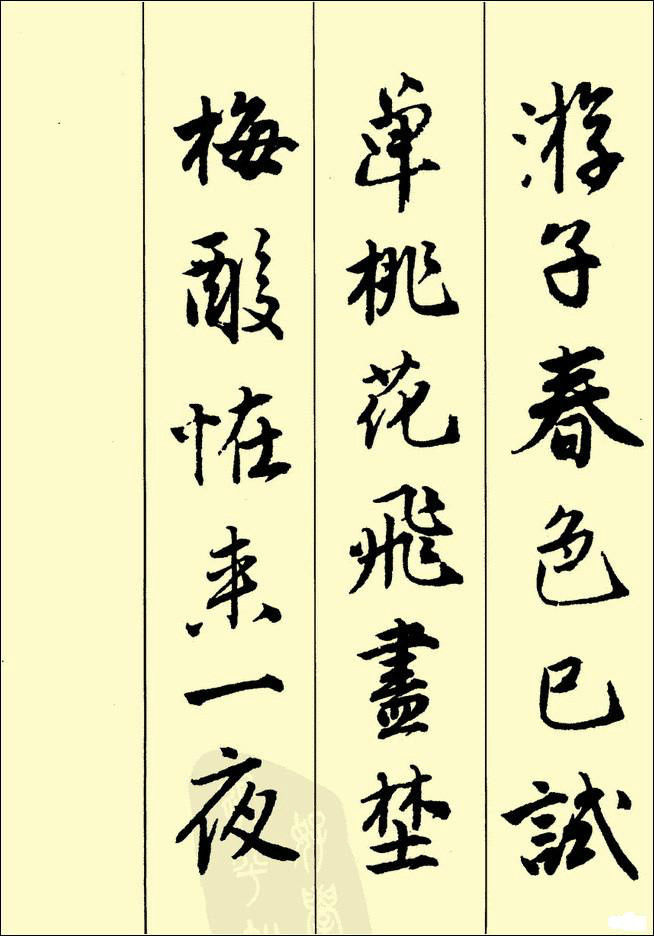 游子春色已試
單桃花飛盡埜
梅酸怪来一夜